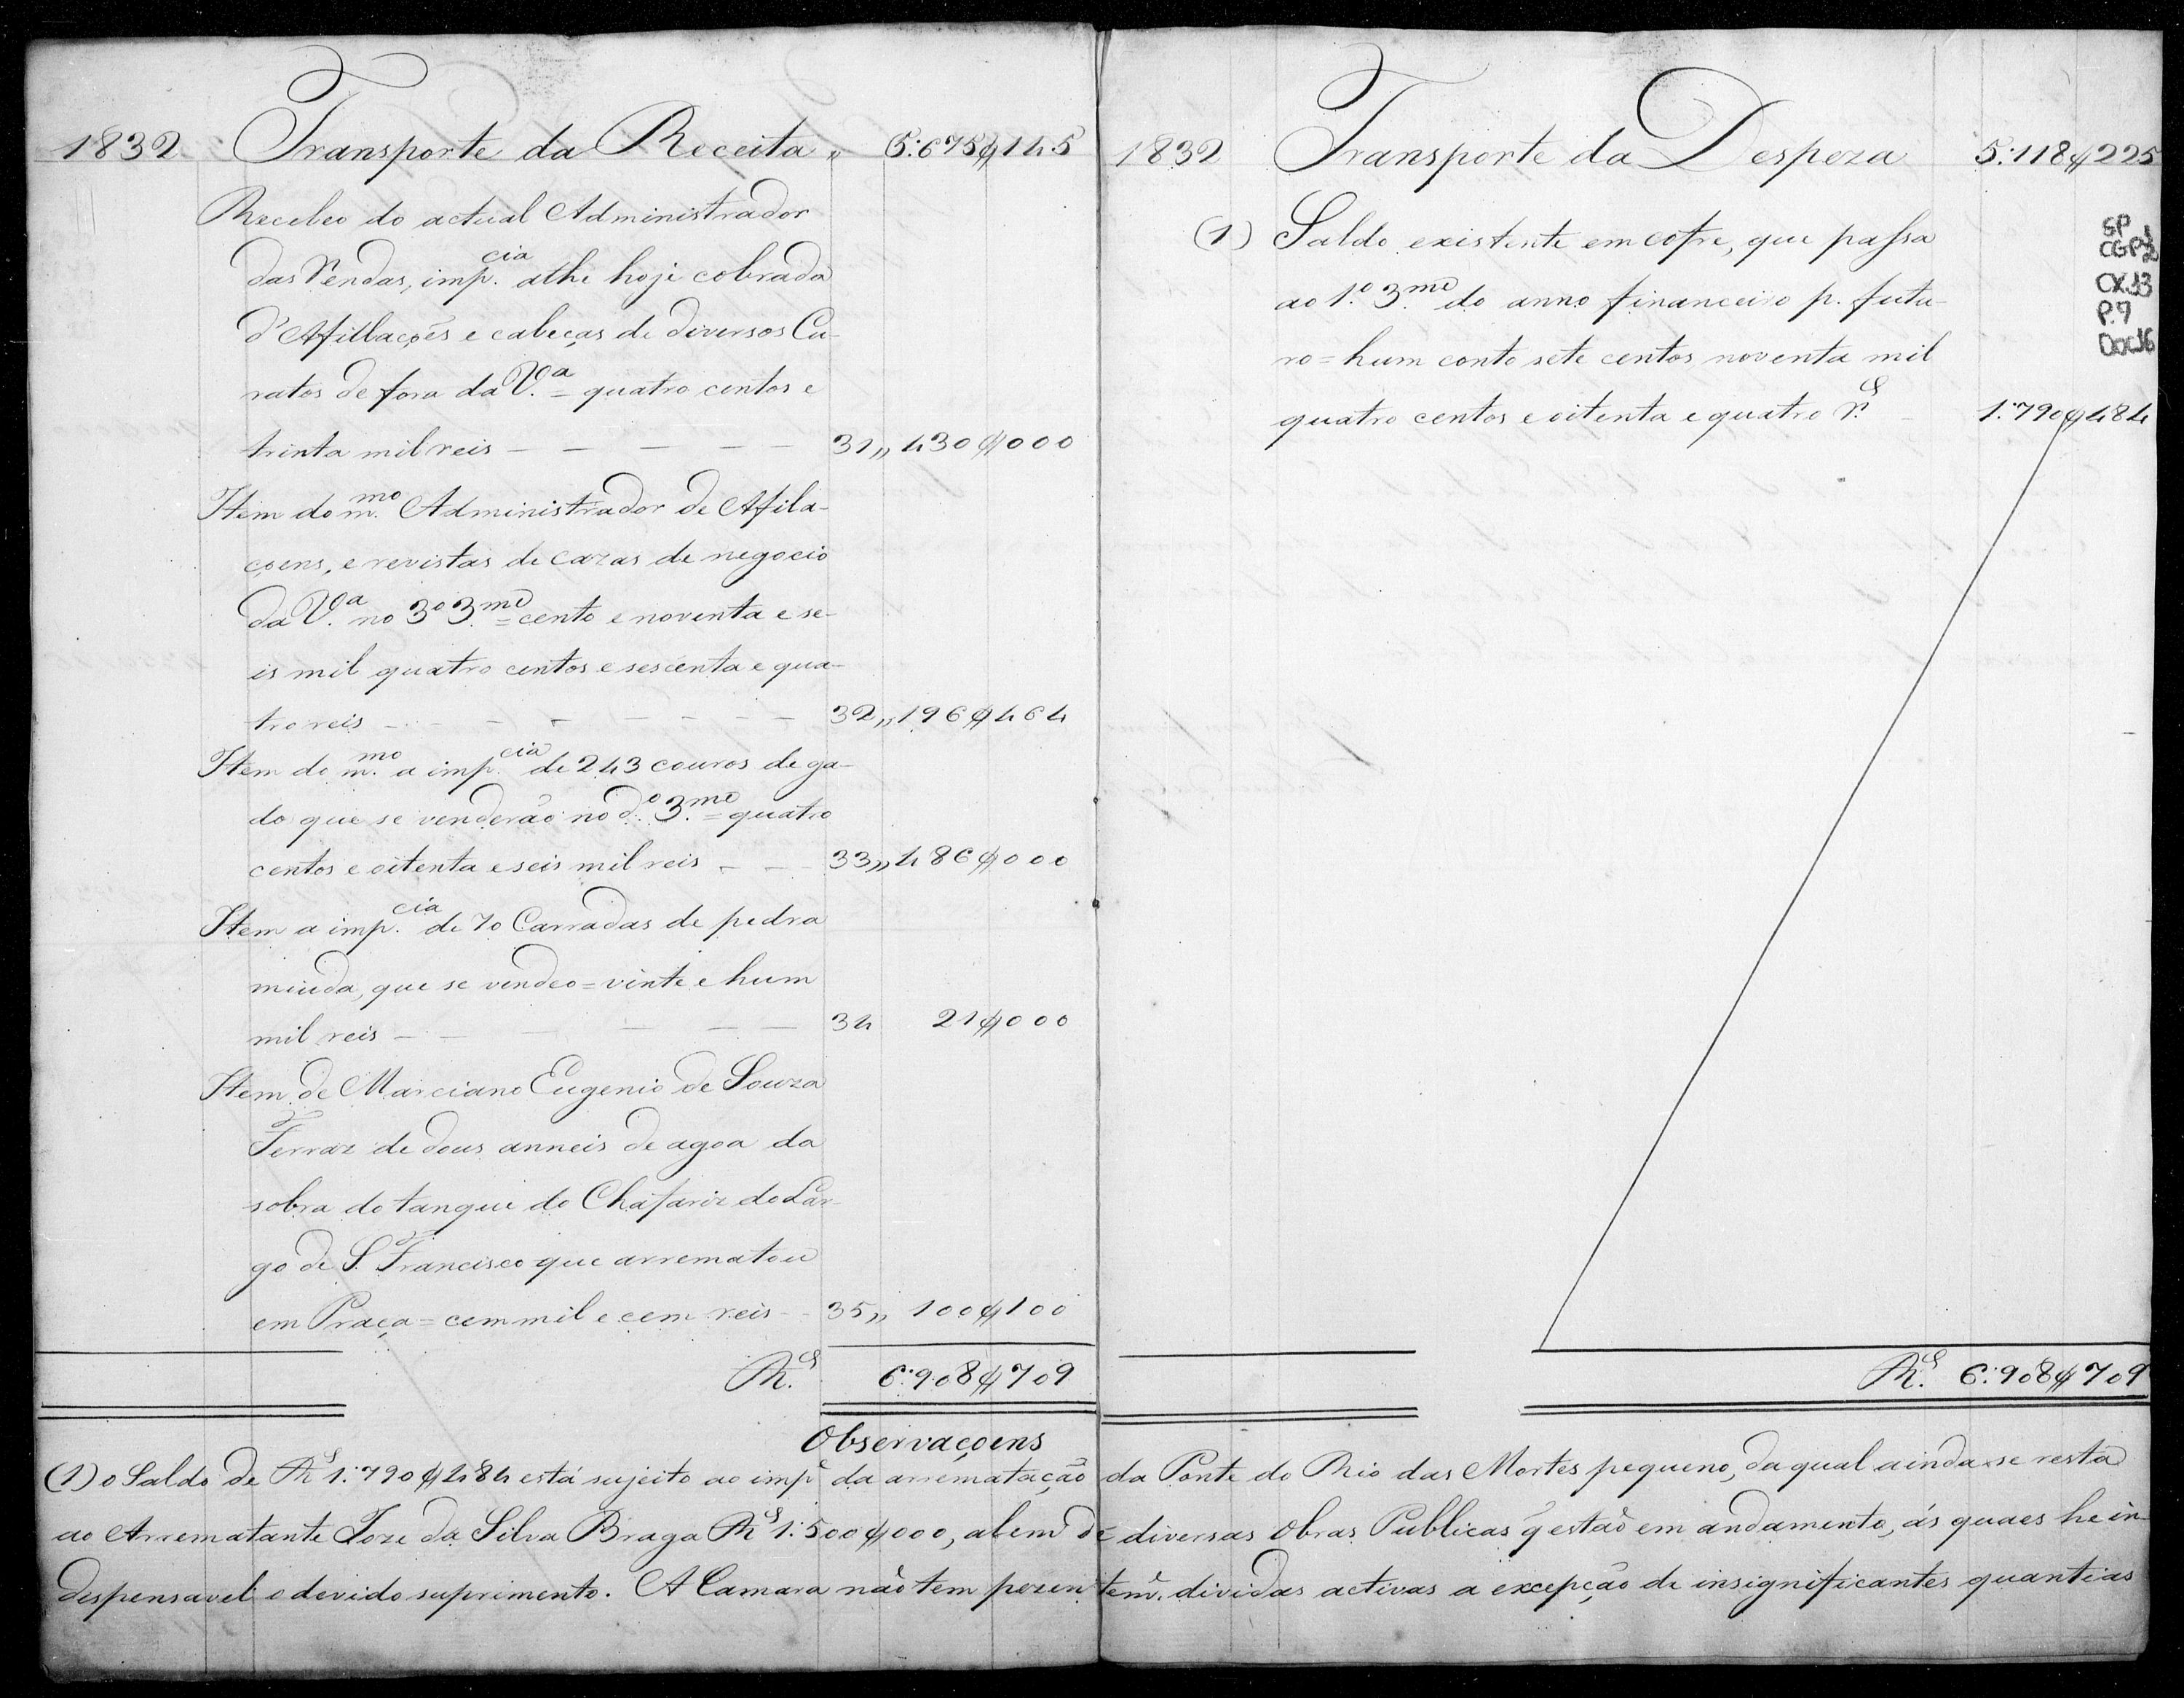 1832 Transporte da Receita „ 5:675$145
Recebeo do actual Administrador
das Rendas, imp.cia athe hoje cobrada
d'Afillações e cabeças de diversos Cu-
ratos de fora da V.a = quatro centos e
trinta mil reis — — — — — 31 „ 430$000
Item do m.mo Administrador de Afila-
çoens, e revistas de cazas de negocio
da V.a no 3º 3.me = cento e noventa e se-
is mil quatro centos e sescenta e qua-
tro reis — — — — — — — 32 „ 196$464
Item do m.mo a imp.cia de 243 couros de ga-
do que se venderão no d.o 3.me = quatro
centos e oitenta e seis mil reis — — 33 „ 486$000
Item a imp.cia de 70 Carradas de pedra
miuda, que se vendeo = vinte e hum
mil reis — — — — — 34 21$000
Item de Marciano Eugenio de Souza
Ferraz de dous anneis de agoa da
sobra do tanque do Chafariz do Lar-
go de S. Francisco que arrematou
em Praça = cem mil e cem reis — 35 „ 100$100
R.s 6:908$709
1832 Transporte da Despeza 5:118$225
(1) Saldo existente em cofre, que passa
ao 1.º 3.me do anno financeiro p. futu-
ro = hum conto sete centos noventa mil
quatro centos e oitenta e quatro r.s — 1:790$484
SP
CGP
CX.13
P.9
Doc16
R.s 6:908$709
Observaçoens
(1) o Saldo de R.s 1:790$484 está sujeito ao imp.e da arrematação da Ponte do Rio das Mortes pequeno, da qual ainda se resta
ao Arrematante Joze da Silva Braga R.s 1:500$000, alem de diversas Obras Publicas q̃ estão em andamento, ás quaes he in-
despensavel o devido suprimento. A Camara não tem prezentem.e dividas activas a excepção de insignificantes quantias